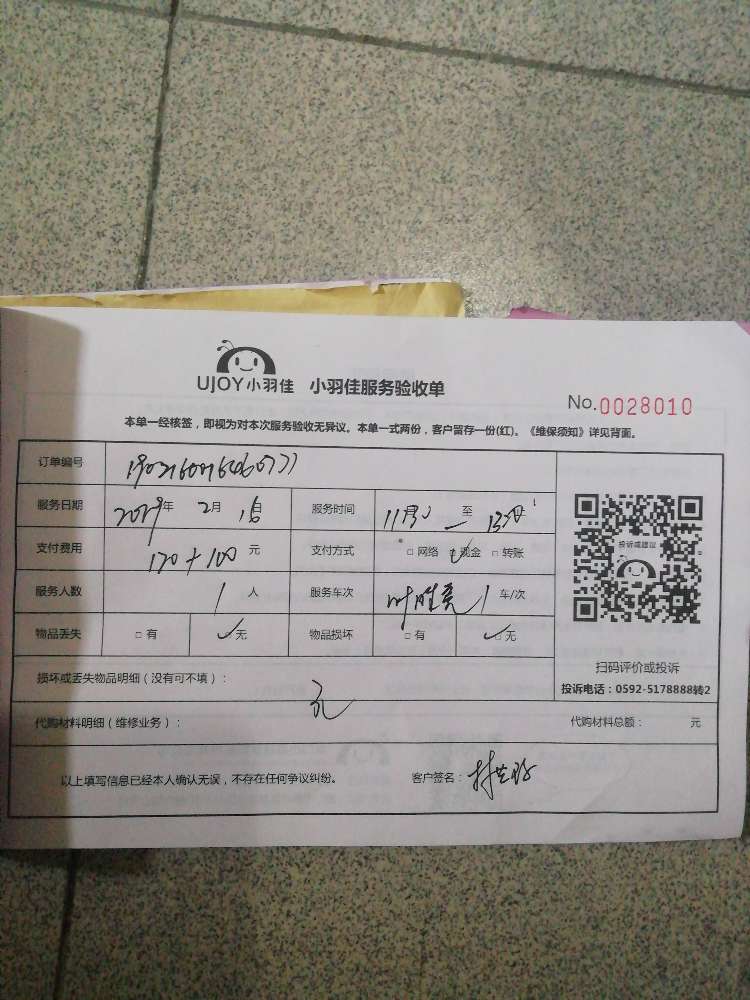 UJOY小羽佳 小羽佳服务验收单
No.0028010
本单一经核签，即视为对本次服务验收无异议。本单一式两份，客户留存一份(红)。《维保须知》详见背面。
订单编号
服务日期 2019年 2月 16日 服务时间 11点30 至 13:30
支付费用 170+100 元 支付方式 □网络 ☑现金 □转账
服务人数 1 人 服务车次 叶胜亮 1 车/次
物品丢失 □有 ☑无 物品损坏 □有 ☑无
投诉或建议
扫码评价或投诉
投诉电话：0592-5178888转2
损坏或丢失物品明细（没有可不填）： 无
代购材料明细（维修业务）： 代购材料总额： 元
以上填写信息已经本人确认无误，不存在任何争议纠纷。 客户签名：